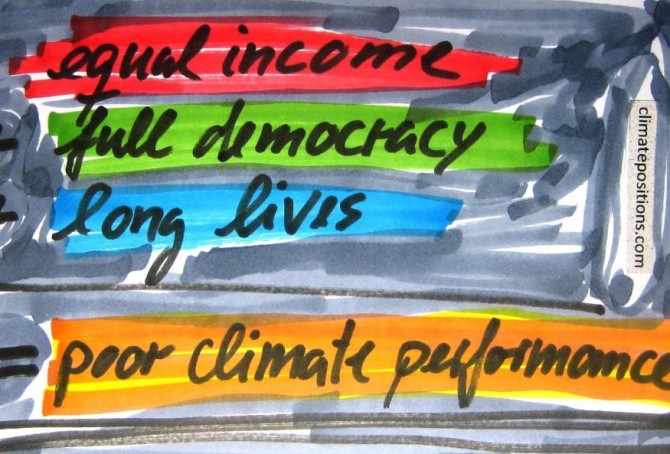 equal income
+ full democracy
+ long lives
= poor climate performance
climatepositions.com